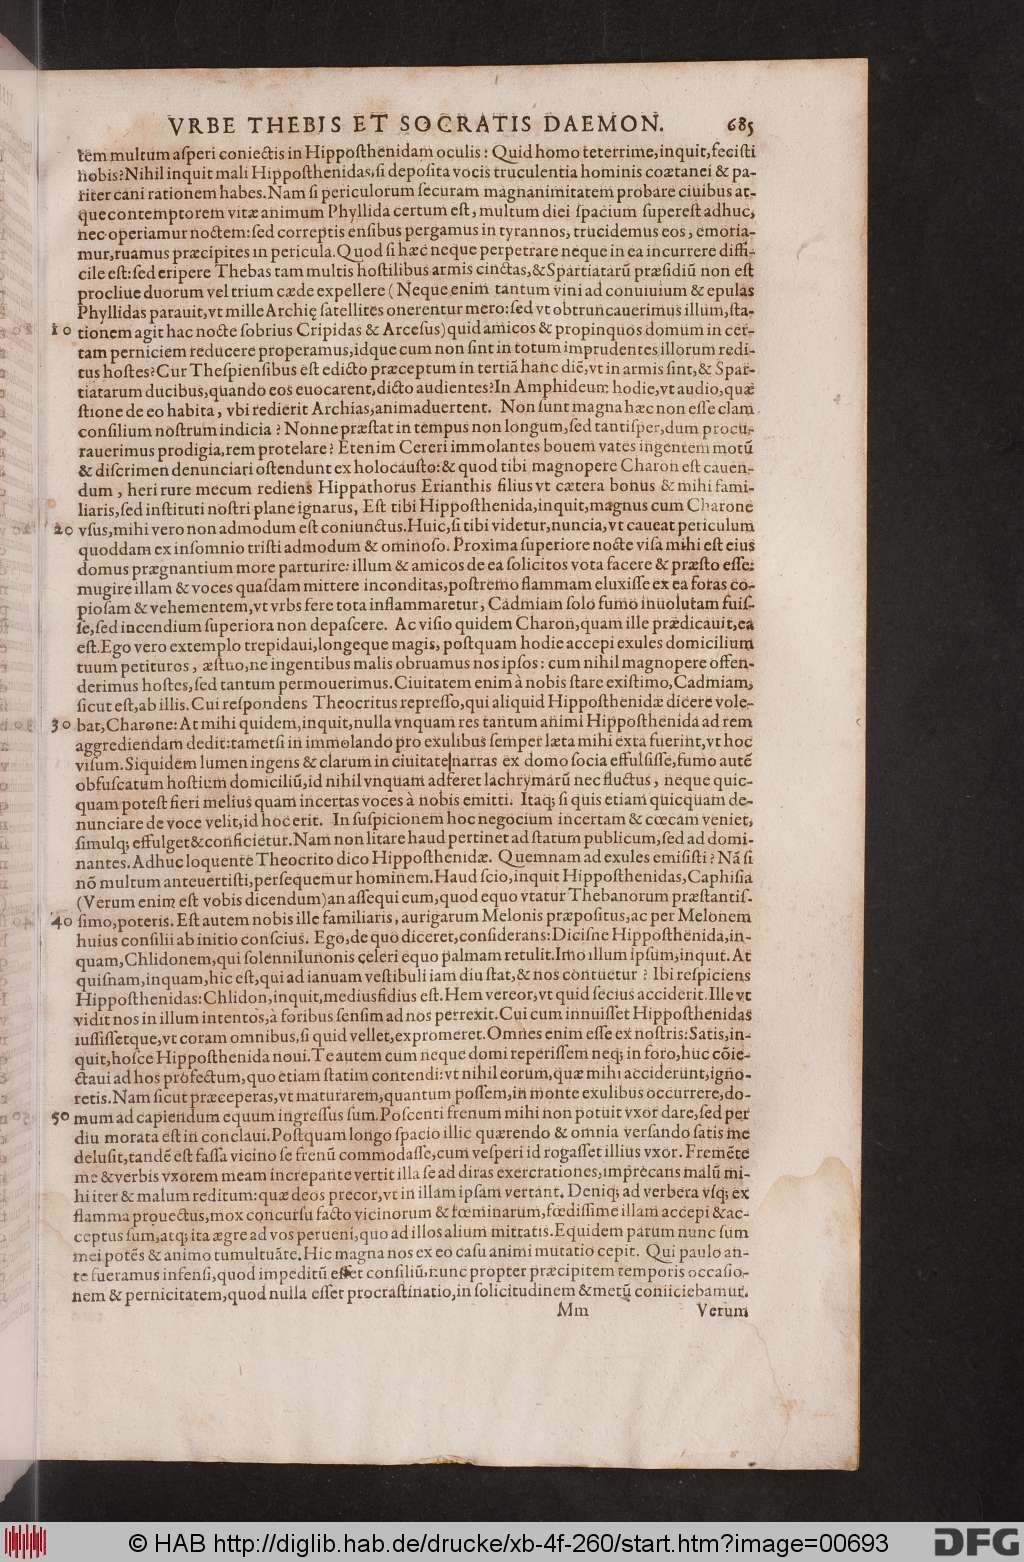 VRBE THEBIS ET SOCRATIS DAEMON. 685
tem multum aſperi coniectis in Hippoſthenidam oculis: Quid homo teterrime, inquit, feciſti
nobis? Nihil inquit mali Hippoſthenidas, ſi depoſita vocis truculentia hominis coætanei & pa-
riter cani rationem habes. Nam ſi periculorum ſecuram magnanimitatem probare ciuibus at-
que contemptorem vitæ animum Phyllida certum eſt, multum diei ſpacium ſupereſt adhuc,
nec operiamur noctem: ſed correptis enſibus pergamus in tyrannos, trucidemus eos, emoria-
mur, ruamus præcipites in pericula. Quod ſi hæc neque perpetrare neque in ea incurrere diffi-
cile eſt: ſed eripere Thebas tam multis hoſtilibus armis cinctas, & Spartiatarū præſidiū non eſt
procliue duorum vel trium cæde expellere (Neque enim tantum vini ad conuiuium & epulas
Phyllidas parauit, vt mille Archię ſatellites onerentur mero: ſed vt obtruncauerimus illum, ſta-
10 tionem agit hac nocte ſobrius Cripidas & Arceſus) quid amicos & propinquos domum in cer-
tam perniciem reducere properamus, idque cum non ſint in totum imprudentes illorum redi-
tus hoſtes? Cur Theſpienſibus eſt edicto præceptum in tertiā hanc diē, vt in armis ſint, & Spar-
tiatarum ducibus, quando eos euocarent, dicto audientes? In Amphideum hodie, vt audio, quæ
ſtione de eo habita, vbi redierit Archias, animaduertent. Non ſunt magna hæc non eſſe clam
conſilium noſtrum indicia? Nonne præſtat in tempus non longum, ſed tantiſper, dum procu-
rauerimus prodigia, rem protelare? Etenim Cereri immolantes bouem vates ingentem motū
& diſcrimen denunciari oſtendunt ex holocauſto: & quod tibi magnopere Charon eſt cauen-
dum, heri rure mecum rediens Hippathorus Erianthis filius vt cætera bonus & mihi fami-
liaris, ſed inſtituti noſtri plane ignarus, Eſt tibi Hippoſthenida, inquit, magnus cum Charone
20 vſus, mihi vero non admodum eſt coniunctus. Huic, ſi tibi videtur, nuncia, vt caueat periculum
quoddam ex inſomnio triſti admodum & ominoſo. Proxima ſuperiore nocte viſa mihi eſt eius
domus prægnantium more parturire: illum & amicos de ea ſolicitos vota facere & præſto eſſe:
mugire illam & voces quaſdam mittere inconditas, poſtremo flammam eluxiſſe ex ea foras co-
pioſam & vehementem, vt vrbs fere tota inflammaretur, Cadmiam ſolo fumo inuolutam fuiſ-
ſe, ſed incendium ſuperiora non depaſcere. Ac viſio quidem Charon, quam ille prædicauit, ea
eſt. Ego vero extemplo trepidaui, longeque magis, poſtquam hodie accepi exules domicilium
tuum petituros, æſtuo, ne ingentibus malis obruamus nos ipſos: cum nihil magnopere offen-
derimus hoſtes, ſed tantum permouerimus. Ciuitatem enim à nobis ſtare exiſtimo, Cadmiam,
ſicut eſt, ab illis. Cui reſpondens Theocritus repreſſo, qui aliquid Hippoſthenidæ dicere vole-
30 bat, Charone: At mihi quidem, inquit, nulla vnquam res tantum animi Hippoſthenida ad rem
aggrediendam dedit: tametſi in immolando pro exulibus ſemper læta mihi exta fuerint, vt hoc
viſum. Siquidem lumen ingens & clarum in ciuitate narras ex domo ſocia effulſiſſe, fumo autē
obfuſcatum hoſtium domiciliū, id nihil vnquam adferet lachrymarū nec fluctus, neque quic-
quam poteſt fieri melius quam incertas voces à nobis emitti. Itaq; ſi quis etiam quicquam de-
nunciare de voce velit, id hoc erit. In ſuſpicionem hoc negocium incertam & cœcam veniet,
ſimulq; effulget & conficietur. Nam non litare haud pertinet ad ſtatum publicum, ſed ad domi-
nantes. Adhuc loquente Theocrito dico Hippoſthenidæ. Quemnam ad exules emiſiſti? Nā ſi
nō multum anteuertiſti, perſequemur hominem. Haud ſcio, inquit Hippoſthenidas, Caphiſia
(Verum enim eſt vobis dicendum) an aſſequi eum, quod equo vtatur Thebanorum præſtantiſ-
40 ſimo, poteris. Eſt autem nobis ille familiaris, aurigarum Melonis præpoſitus, ac per Melonem
huius conſilii ab initio conſcius. Ego, de quo diceret, conſiderans: Diciſne Hippoſthenida, in-
quam, Chlidonem, qui ſolenni Iunonis celeri equo palmam retulit. Imo illum ipſum, inquit. At
quiſnam, inquam, hic eſt, qui ad ianuam veſtibuli iam diu ſtat, & nos contuetur? Ibi reſpiciens
Hippoſthenidas: Chlidon, inquit, mediusfidius eſt. Hem vereor, vt quid ſecius acciderit. Ille vt
vidit nos in illum intentos, à foribus ſenſim ad nos perrexit. Cui cum innuiſſet Hippoſthenidas
iuſſiſſetque, vt coram omnibus, ſi quid vellet, expromeret. Omnes enim eſſe ex noſtris: Satis, in-
quit, hoſce Hippoſthenida noui. Te autem cum neque domi reperiſſem neq; in foro, huc cōie-
ctaui ad hos profectum, quo etiam ſtatim contendi: vt nihil eorum, quæ mihi acciderunt, igno-
retis. Nam ſicut præceperas, vt maturarem, quantum poſſem, in monte exulibus occurrere, do-
50 mum ad capiendum equum ingreſſus ſum. Poſcenti frenum mihi non potuit vxor dare, ſed per
diu morata eſt in conclaui. Poſtquam longo ſpacio illic quærendo & omnia verſando ſatis me
deluſit, tandē eſt faſſa vicino ſe frenū commodaſſe, cum veſperi id rogaſſet illius vxor. Fremēte
me & verbis vxorem meam increpante vertit illa ſe ad diras exercrationes, imprecans malū mi-
hi iter & malum reditum: quæ deos precor, vt in illam ipſam vertant. Deniq; ad verbera vſq; ex
flamma prouectus, mox concurſu facto vicinorum & fœminarum, fœdiſſime illam accepi & ac-
ceptus ſum, atq; ita ægre ad vos perueni, quo ad illos alium mittatis. Equidem parum nunc ſum
mei potēs & animo tumultuāte. Hic magna nos ex eo caſu animi mutatio cepit. Qui paulo an-
te fueramus infenſi, quod impeditū eſſet conſiliū, nunc propter præcipitem temporis occaſio-
nem & pernicitatem, quod nulla eſſet procraſtinatio, in ſolicitudinem & metū coniiciebamur.
Mm Verum
© HAB http://diglib.hab.de/drucke/xb-4f-260/start.htm?image=00693
DFG